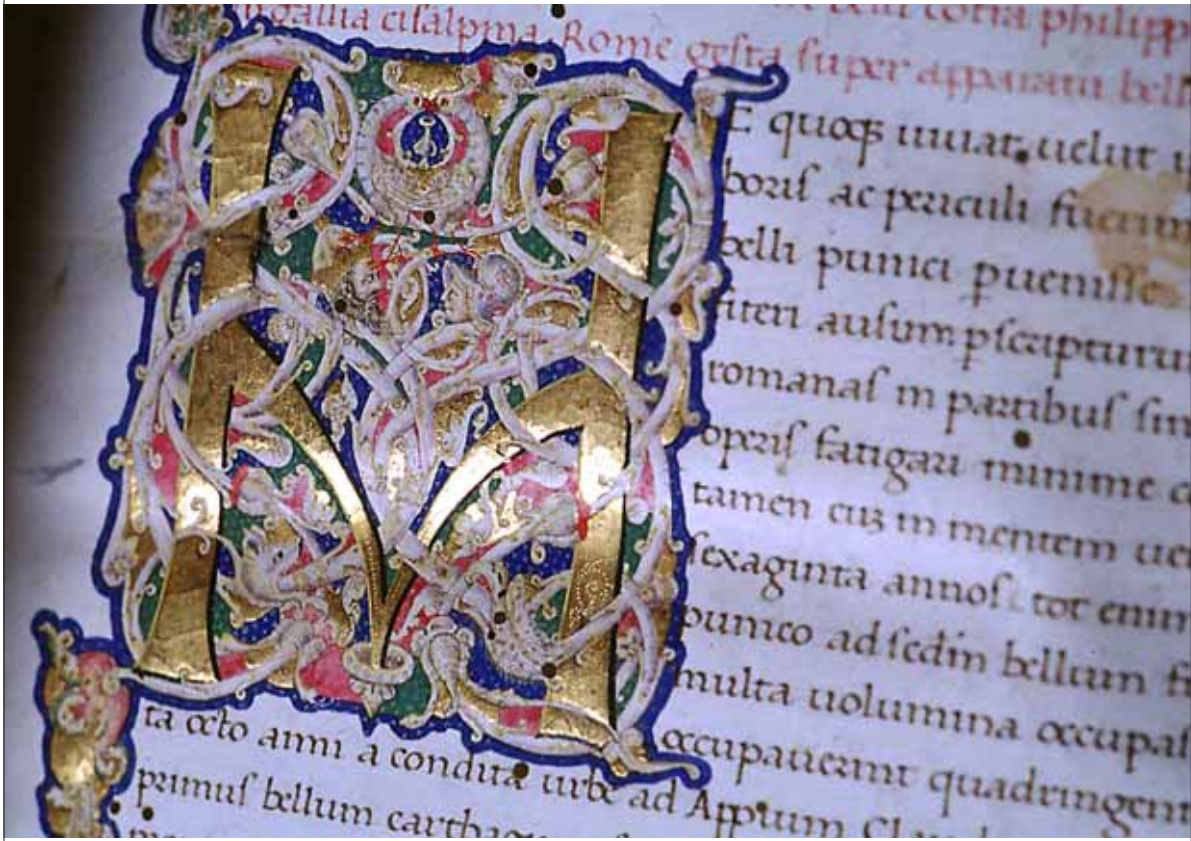 gallia cisalpina. Rome gesta super apparatu bell
ME quoqʒ iuuat uelut
boris ac periculi fuerim
belli punici puenisse
fiteri ausum pscripturu
romanas in partibus sin
operis fatigari minime c
tamen cuʒ in mentem uen
sexaginta annos. tot enim
punico ad sedin bellum fi
multa uolumina occupas
occupauerint quadringent
ta octo anni a condita urbe ad Appium Clau
primus bellum